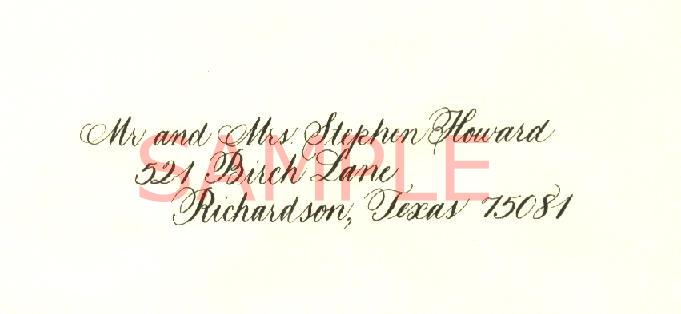 Mr and Mrs. Stephen Howard
521 Birch Lane
Richardson, Texas 75081
SAMPLE